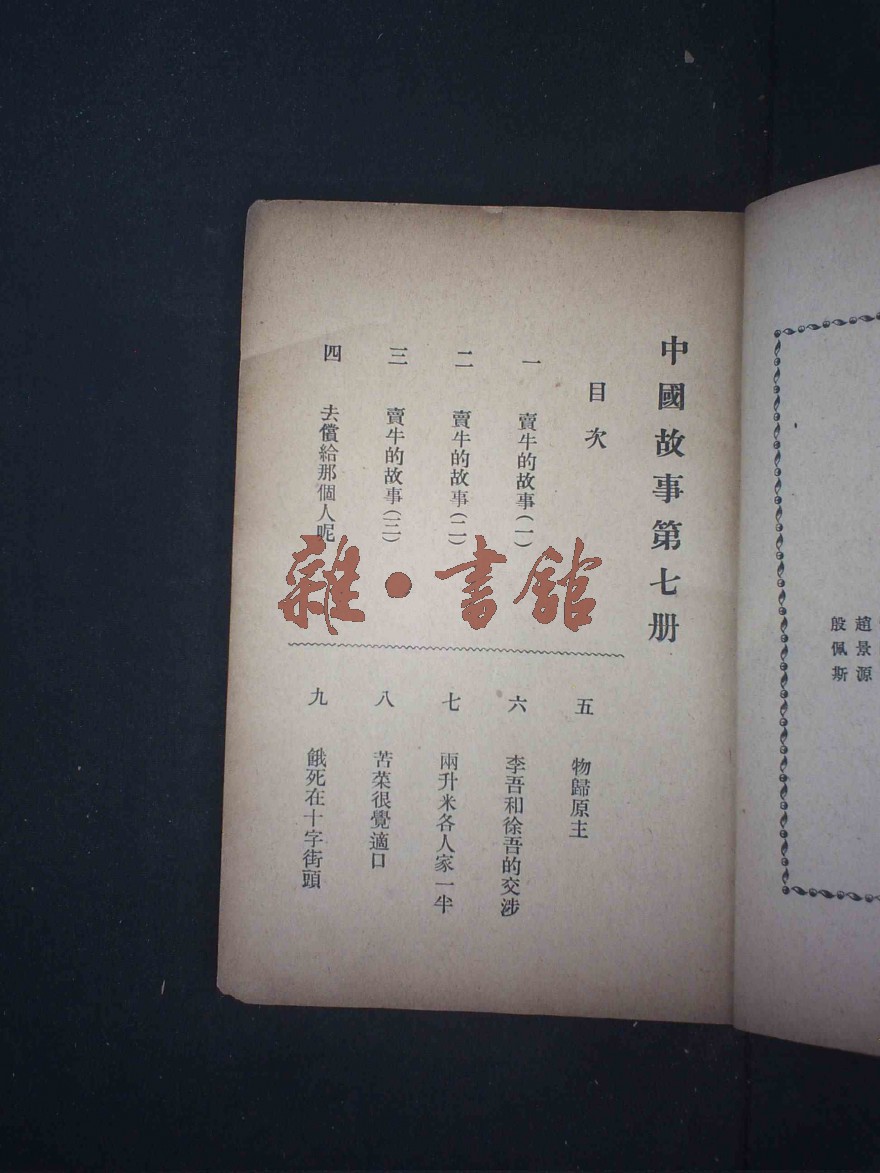 中國故事第七册
目次
一 賣牛的故事(一)
二 賣牛的故事(二)
三 賣牛的故事(三)
四 去償給那個人呢
五 物歸原主
六 李吾和徐吾的交涉
七 兩升米各人家一半
八 苦菜很覺適口
九 餓死在十字街頭
雜·書館
趙景源
殷佩斯